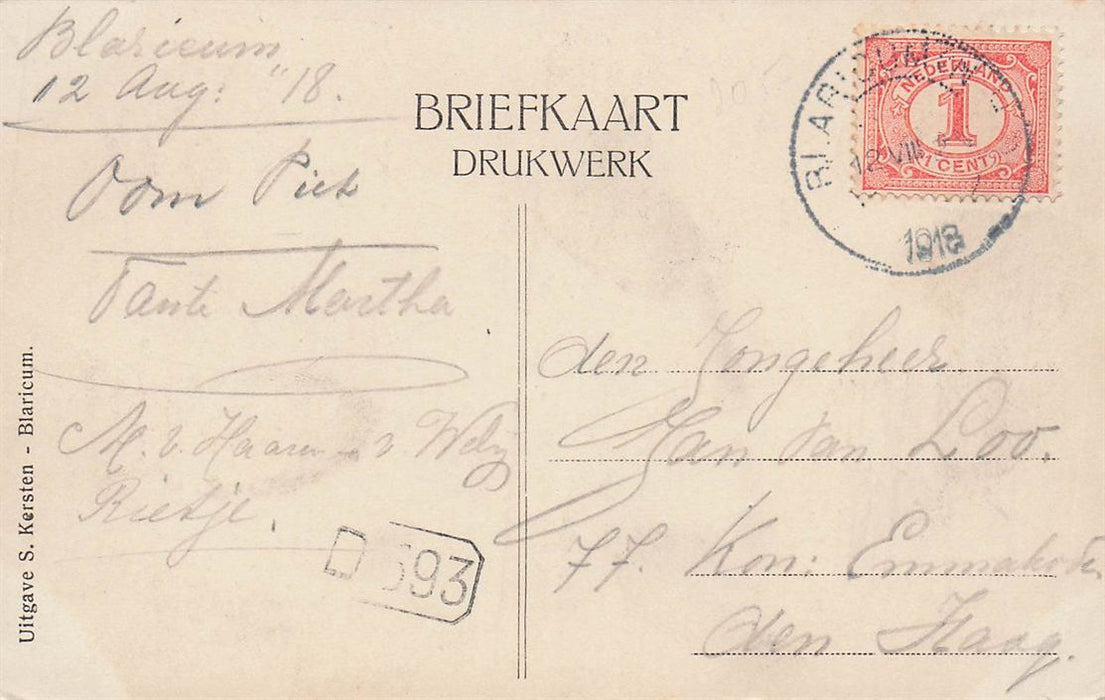 Blaricum
12 Aug: "18.
Oom Piet
Tante Martha
M. v. Haaren - v Wely
Rietje.
BRIEFKAART
DRUKWERK
BLARICUM
12 VIII
1918
NEDERLAND
1
1 CENT
den Jongeheer
Han van Loo.
77. Kon: Emmakade
den Haag.
593
Uitgave S. Kersten - Blaricum.